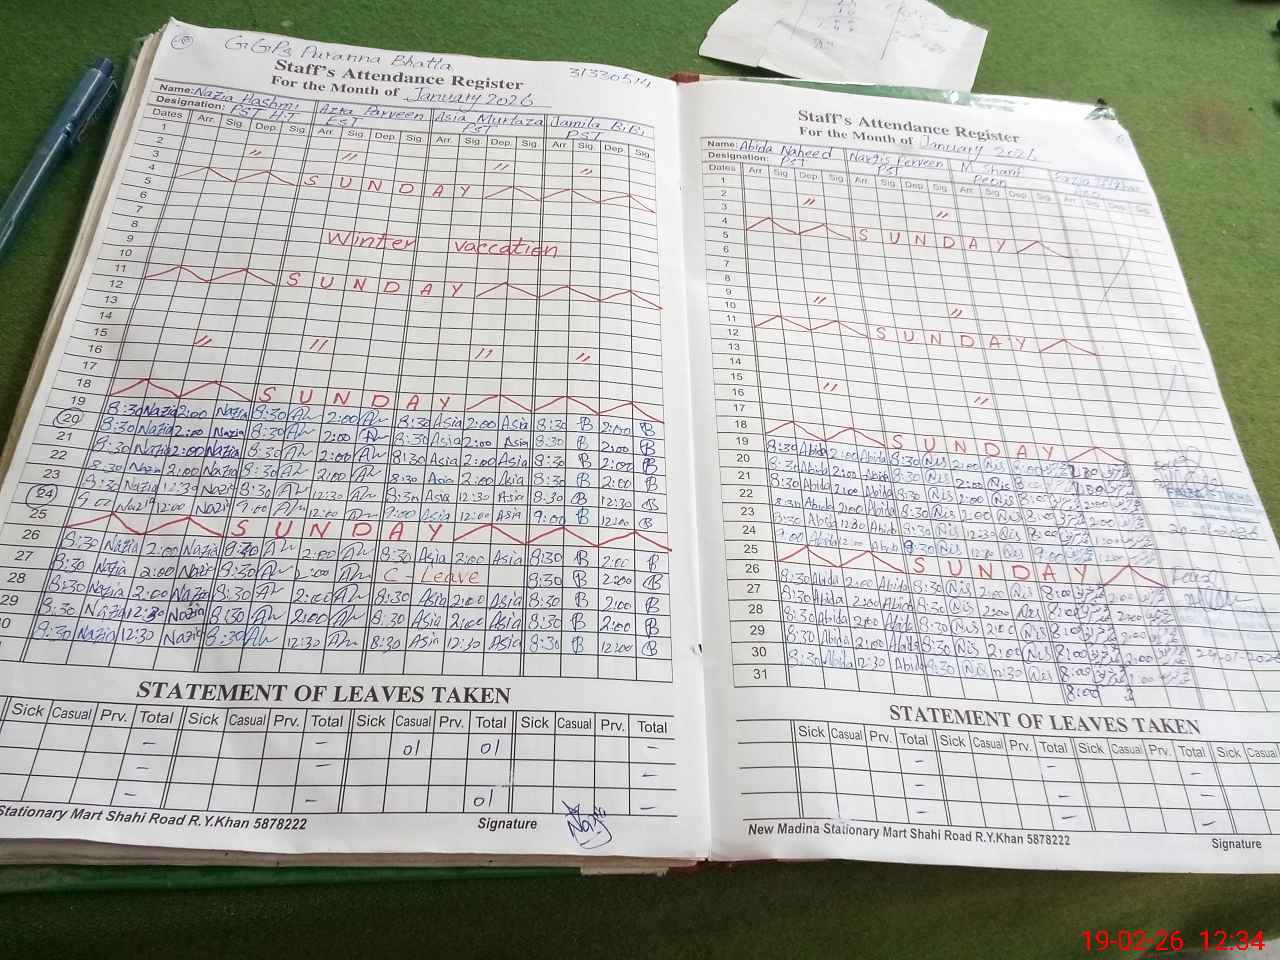 GGPS Puranna Bhatta
31330514
Staff's Attendance Register
For the Month of January 2026
Name: Nazia Hashmi Azra Parveen Asia Murtaza Jamila BiBi
Designation: PST H.T EST PST PST
Dates Arr. Sig. Dep. Sig. Arr. Sig. Dep. Sig. Arr. Sig. Dep. Sig. Arr. Sig. Dep. Sig.
1
2
3 〃 〃 〃 〃
4 SUNDAY
5
6
7
8
9 Winter vaccation
10
11 SUNDAY
12
13
14
15
16 〃 〃 〃 〃
17
18 SUNDAY
19 8:30 Nazia 2:00 Nazia 8:30 2:00 8:30 Asia 2:00 Asia 8:30 B 2:00 B
20 8:30 Nazia 2:00 Nazia 8:30 2:00 8:30 Asia 2:00 Asia 8:30 B 2:00 B
21 8:30 Nazia 2:00 Nazia 8:30 2:00 8:30 Asia 2:00 Asia 8:30 B 2:00 B
22 8:30 Nazia 2:00 Nazia 8:30 2:00 8:30 Asia 2:00 Asia 8:30 B 2:00 B
23 8:30 Nazia 12:30 Nazia 8:30 12:30 8:30 Asia 12:30 Asia 8:30 B 12:30 B
24 9:00 Nazia 12:00 Nazia 9:00 12:00 9:00 Asia 12:00 Asia 9:00 B 12:00 B
25 SUNDAY
26 8:30 Nazia 2:00 Nazia 8:30 2:00 8:30 Asia 2:00 Asia 8:30 B 2:00 B
27 8:30 Nazia 2:00 Nazia 8:30 2:00 C-Leave 8:30 B 2:00 B
28 8:30 Nazia 2:00 Nazia 8:30 2:00 8:30 Asia 2:00 Asia 8:30 B 2:00 B
29 8:30 Nazia 12:30 Nazia 8:30 2:00 8:30 Asia 2:00 Asia 8:30 B 2:00 B
30 8:30 Nazia 12:30 Nazia 8:30 12:30 8:30 Asia 12:30 Asia 8:30 B 12:00 B
STATEMENT OF LEAVES TAKEN
Sick Casual Prv. Total Sick Casual Prv. Total Sick Casual Prv. Total Sick Casual Prv. Total
- - 01 01 -
- -
- - 01 -
Stationary Mart Shahi Road R.Y.Khan 5878222 Signature
Staff's Attendance Register
For the Month of January 2026
Name: Abida Naheed Nargis Perveen M. Sharif
Designation: PST PST Peon
Dates Arr. Sig. Dep. Sig. Arr. Sig. Dep. Sig. Arr. Sig. Dep. Sig. Arr. Sig. Dep. Sig.
1
2
3 〃 〃
4 SUNDAY
5
6
7
8
9
10 〃 〃
11 SUNDAY
12
13
14
15
16 〃 〃
17
18 SUNDAY
19 8:30 Abida 2:00 Abida 8:30 Nis 2:00 Nis 8:00
20 8:30 Abida 2:00 Abida 8:30 Nis 2:00 Nis 8:00
21 8:30 Abida 2:00 Abida 8:30 Nis 2:00 Nis 8:00
22 8:30 Abida 2:00 Abida 8:30 Nis 2:00 Nis 8:00
23 8:30 Abida 12:30 Abida 8:30 Nis 12:30 Nis
24 9:00 Abida 12:00 Abida 9:30 Nis 12:00 Nis 9:00
25 SUNDAY
26 8:30 Abida 2:00 Abida 8:30 Nis 2:00 Nis 8:00
27 8:30 Abida 2:00 Abida 8:30 Nis 2:00 Nis 8:00
28 8:30 Abida 2:00 Abida 8:30 Nis 2:00 Nis 8:00
29 8:30 Abida 2:00 Abida 8:30 Nis 2:00 Nis 8:00
30 8:30 Abida 12:30 Abida 8:30 Nis 12:30 Nis 8:00
31 8:00
STATEMENT OF LEAVES TAKEN
Sick Casual Prv. Total Sick Casual Prv. Total Sick Casual Prv. Total Sick Casual
- - -
- - -
- - -
New Madina Stationary Mart Shahi Road R.Y.Khan 5878222 Signature
19-02-26 12:34